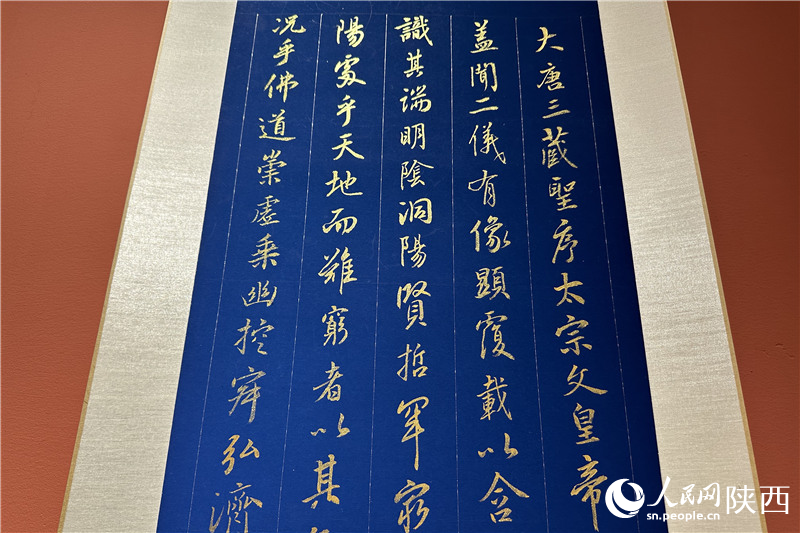 大唐三藏聖序太宗文皇帝
盖聞二儀有像顯覆載以含
識其端明陰洞陽賢哲罕窮
陽處乎天地而難窮者以其
况乎佛道崇虛乘幽控寂弘濟
人民网 陕西
sn.people.cn